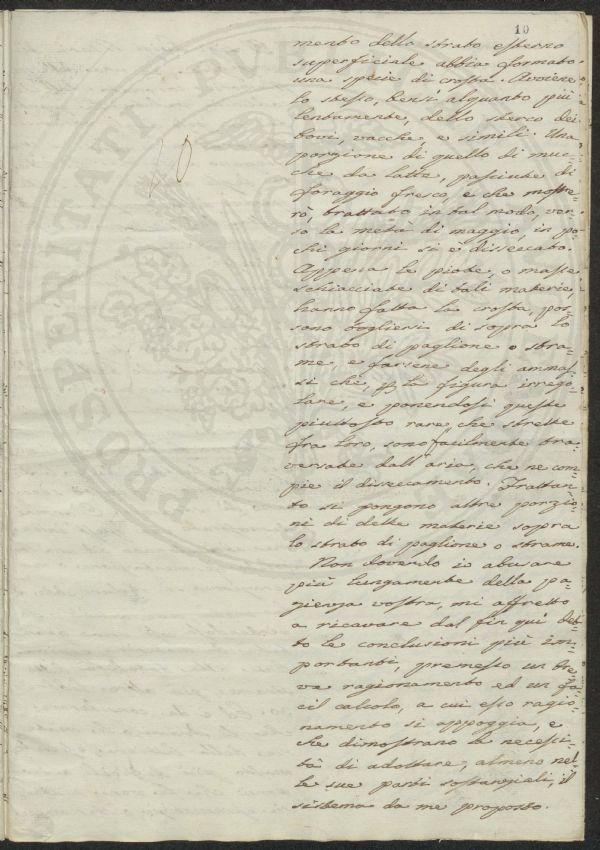 10
mento dello strato esterno
superficiale abbia formato
una specie di crosta. Avviene
lo stesso, bensì alquanto più
lentamente, dello sterco dei
bovi, vacche, e simili. Una
porzione di quello di muc-
che da latte, pasciute di
foraggio fresco, e che mostre-
rò, trattato in tal modo, ver-
so la metà di maggio, in po-
chi giorni si è disseccato.
Appena le piote, o masse
schiacciate di tali materie,
hanno fatta la crosta, pos-
sono togliersi di sopra lo
strato di paglione o stra-
me, e farsene degli ammas-
si che, p la figura irrego-
lare, e ponendosi queste
piuttosto rare, che strette
fra loro, sono facilmente tra-
versate dall'aria, che ne com-
pie il disseccamento. Frattan-
to si pongono altre porzio-
ni di dette materie sopra
lo strato di paglione o strame.
Non dovendo io abusare
più lungamente della pa-
zienza vostra, mi affretto
a ricavare dal fin qui det-
to le conclusioni più im-
portanti, premesso un bre-
ve ragionamento ed un fa-
cil calcolo, a cui esso ragio-
namento si appoggia, e
che dimostrano la necessi-
tà di adottare, almeno nel-
le sue parti sostanziali, il
sistema da me proposto.
PROSPERITATI PUB